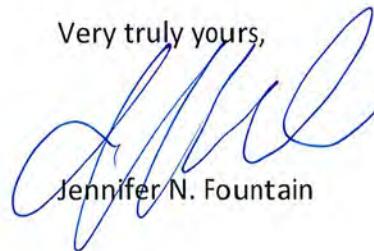 Very truly yours,
Jennifer N. Fountain